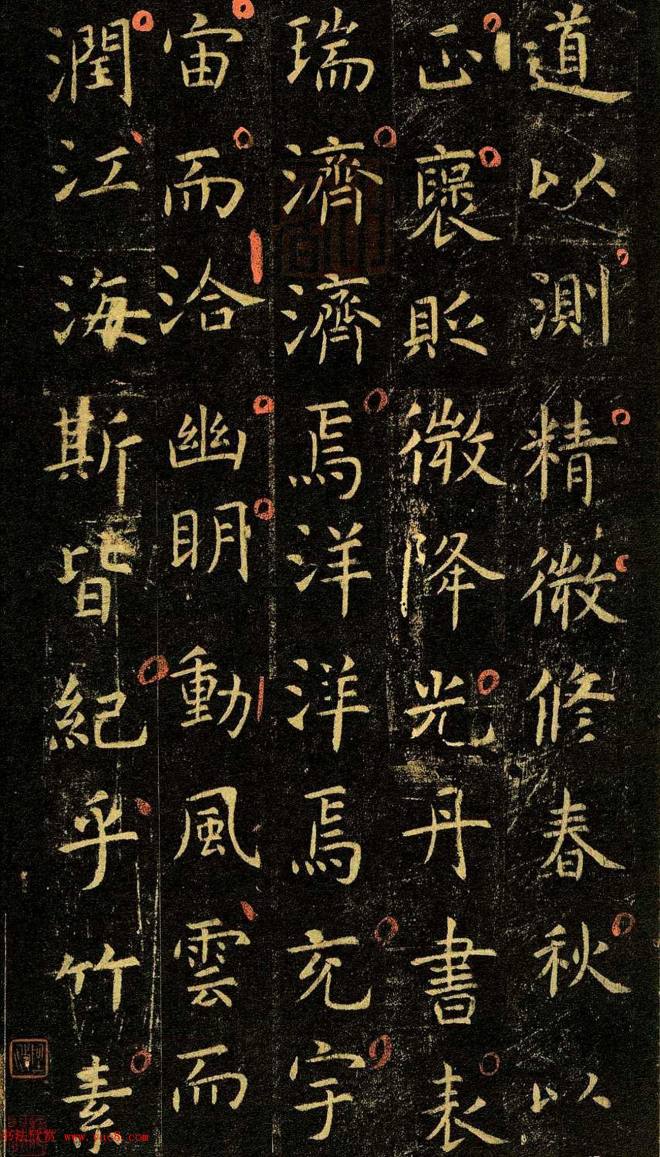 道以測精微修春秋以
正襃貶微降光丹書表
瑞濟濟焉洋洋焉充宇
宙而洽幽明動風雲而
潤江海斯皆紀乎竹素
书法欣赏 www.yac8.com